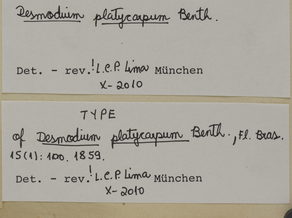 Desmodium platycarpum Benth.
Det. - rev.! L.C.P. Lima München
X-2010
TYPE
of Desmodium platycarpum Benth., Fl. Bras.
15(1): 100. 1859.
Det. - rev.! L.C.P. Lima München
X-2010